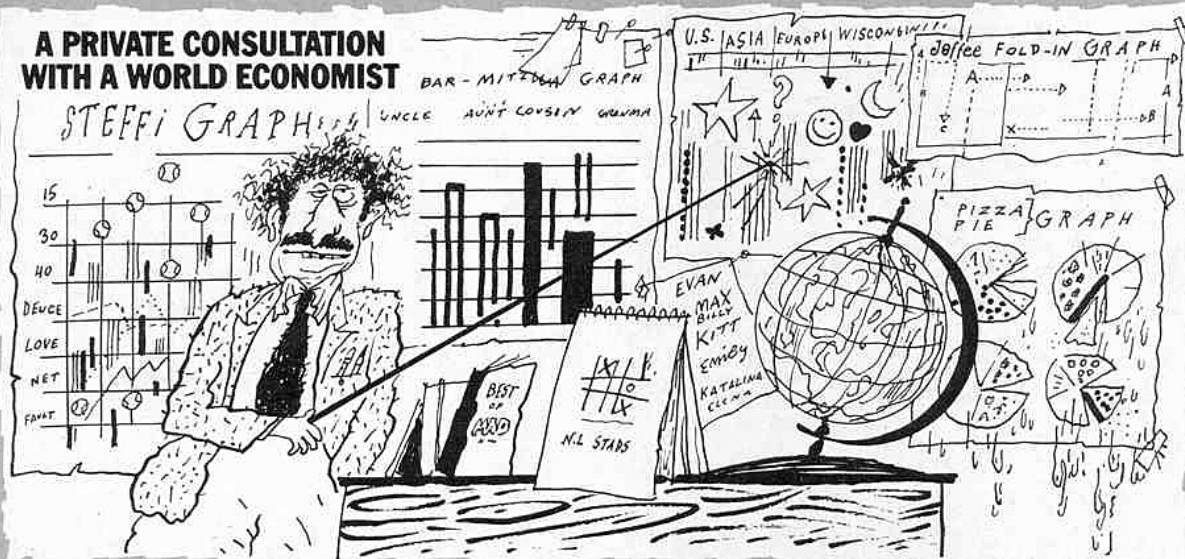 A PRIVATE CONSULTATION
WITH A WORLD ECONOMIST
STEFFI GRAPH
15
30
40
DEUCE
LOVE
NET
FAULT
BAR-MITZVA GRAPH
UNCLE AUNT COUSIN GRANMA
U.S. ASIA EUROPE WISCONSIN
Jaffee FOLD-IN GRAPH
A D
A
B
C X
PIZZA
PIE } GRAPH
EVAN
MAX
BILLY
KITT
EMILY
KATALINA
BEST
OF
MAD
X
O
X